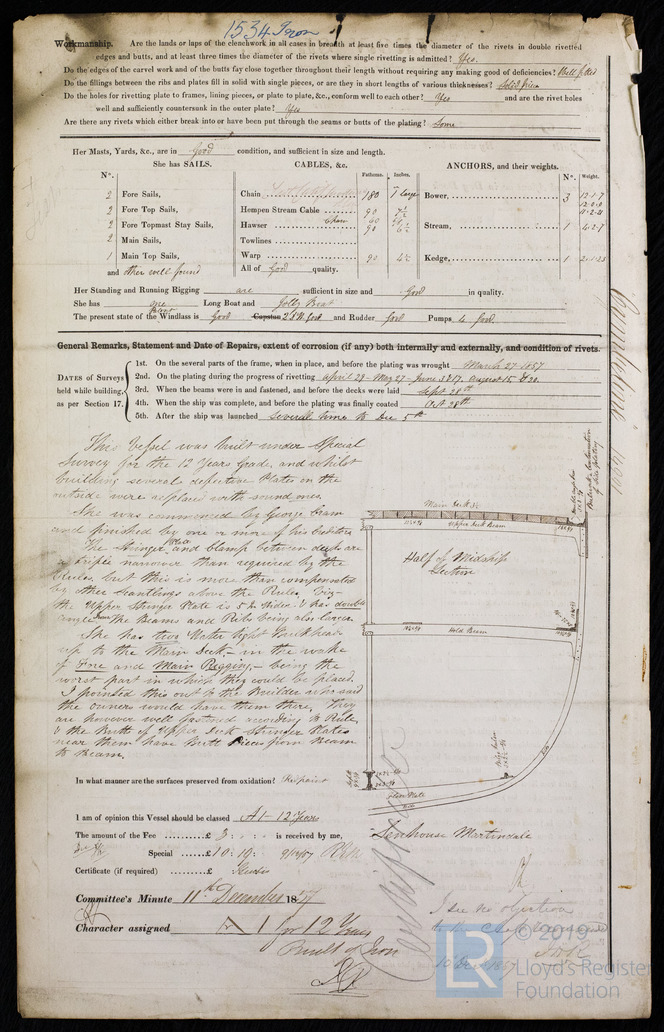 1534 Iron
Workmanship. Are the lands or laps of the clenchwork in all cases in breadth at least five times the diameter of the rivets in double rivetted
edges and butts, and at least three times the diameter of the rivets where single rivetting is admitted? Yes.
Do the edges of the carvel work and of the butts fay close together throughout their length without requiring any making good of deficiencies? Well fitted
Do the fillings between the ribs and plates fill in solid with single pieces, or are they in short lengths of various thicknesses? Solid pieces
Do the holes for rivetting plate to frames, lining pieces, or plate to plate, &c., conform well to each other? Yes and are the rivet holes
well and sufficiently countersunk in the outer plate? Yes
Are there any rivets which either break into or have been put through the seams or butts of the plating? Some
Her Masts, Yards, &c., are in Good condition, and sufficient in size and length.
She has SAILS. CABLES, &c. ANCHORS, and their weights.
N°. Fathoms. Inches. N°. Weight.
2 Fore Sails, Chain 180 Bower, 3
2 Fore Top Sails, Hempen Stream Cable 90
2 Fore Topmast Stay Sails, Hawser Chain 60 Stream, 1 4.2.7
90
2 Main Sails, Towlines
1 Main Top Sails, Warp 90 Kedge, 1 2.1.23
and other well found All of Good quality.
Her Standing and Running Rigging are sufficient in size and Good in quality.
She has one Long Boat and Jolly Boat
The present state of the Windlass is Good Capstan and Rudder Good Pumps 4 Good.
General Remarks, Statement and Date of Repairs, extent of corrosion (if any) both internally and externally, and condition of rivets.
DATES of Surveys held while building, as per Section 17.
1st. On the several parts of the frame, when in place, and before the plating was wrought March 27 - 1857
2nd. On the plating during the progress of rivetting April 29 - May 27 - June 3 & 17. August 15 & 20.
3rd. When the beams were in and fastened, and before the decks were laid Sept 28th
4th. When the ship was complete, and before the plating was finally coated Oct 28th
5th. After the ship was launched Several times to Dec 5th
This Vessel was built under Special
Survey for the 12 Years Grade, and whilst
building several defective Plates in the
outside were replaced with sound ones.
She was commenced by George Cram
and finished by one or more of his Creditors
The Stringer Plate and Clamp between decks are
a trifle narrower than required by the
Rules, but this is more than compensated
by other Scantlings above the Rules, Viz-
the Upper Stringer Plate is wider & has double
angle Iron the Beams and Ribs being also larger.
She has two Water tight Bulkheads
up to the Main Deck - in the wake
of Fore and Main Rigging, - being the
worst part in which they could be placed.
I pointed this out to the Builder who said
the owners would have them there. They
are however well fastened according to Rule,
& the Butts of Upper Deck Stringer Plates
near them have Butt Pieces from Beam
to Beam.
Main Deck
Upper Deck Beam
Half of Midship
Section
Hold Beam
Floor Plate
Rib
In what manner are the surfaces preserved from oxidation? Red paint
I am of opinion this Vessel should be classed A1 - 12 Years
The amount of the Fee £ 5 : - : - is received by me,
Special £ 10 : 19 : -
Certificate (if required) £
Senhouse Martindale
Committee's Minute 11th December 1857
Character assigned A 1 for 12 Years
Built of Iron
I see no objection
to the Class
© 2019
LR Lloyd's Register
Foundation